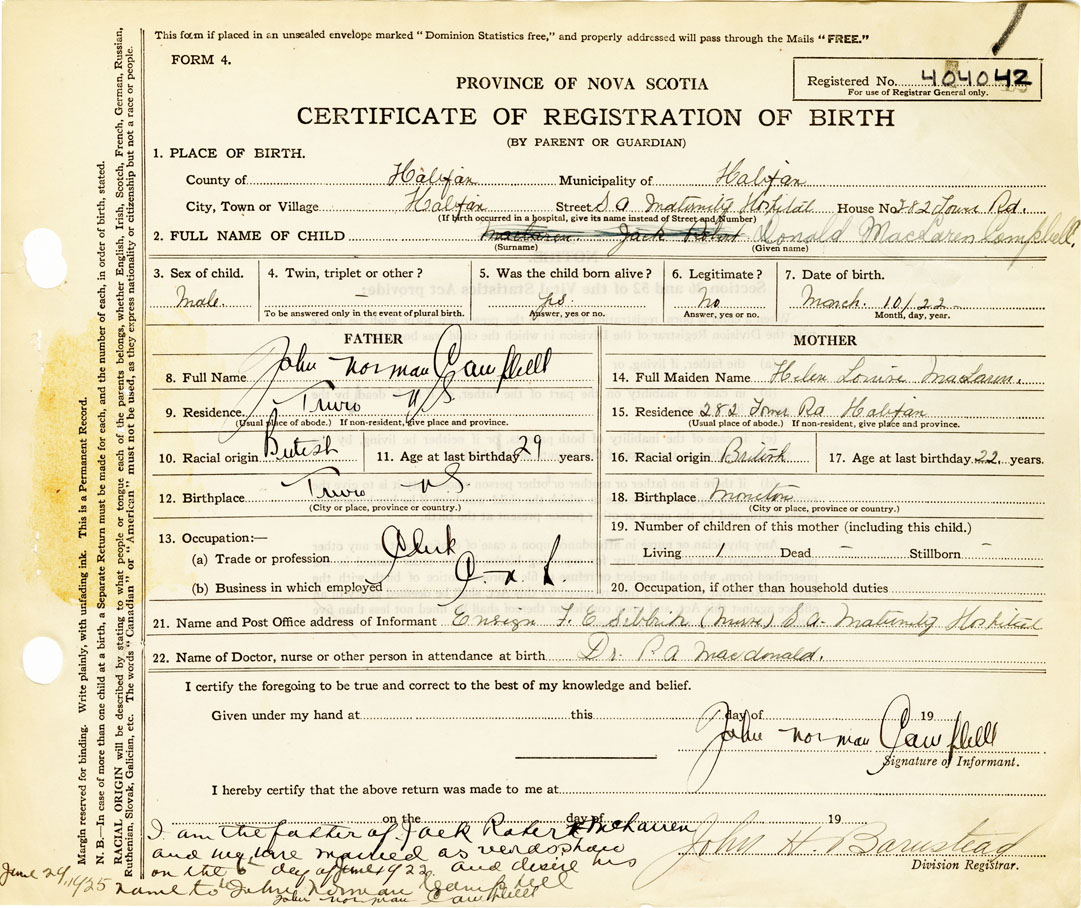 This form if placed in an unsealed envelope marked "Dominion Statistics free," and properly addressed will pass through the Mails "FREE."
FORM 4.
Registered No. 404042
For use of Registrar General only.
PROVINCE OF NOVA SCOTIA
CERTIFICATE OF REGISTRATION OF BIRTH
(BY PARENT OR GUARDIAN)
1. PLACE OF BIRTH.
County of Halifax Municipality of Halifax
City, Town or Village Halifax Street S A Maternity Hospital House No 282 Tower Rd.
(If birth occurred in a hospital, give its name instead of Street and Number)
2. FULL NAME OF CHILD MacLaren. Jack Robert Donald MacLaren Campbell.
(Surname) (Given name)
3. Sex of child. 4. Twin, triplet or other ? 5. Was the child born alive ? 6. Legitimate ? 7. Date of birth.
Male. — yes. No March 10/22
To be answered only in the event of plural birth. Answer, yes or no. Answer, yes or no. Month, day, year.
FATHER
8. Full Name John Norman Campbell
9. Residence. Truro N S
(Usual place of abode.) If non-resident, give place and province.
10. Racial origin British 11. Age at last birthday 29 years.
12. Birthplace Truro N S
(City or place, province or country.)
13. Occupation:—
(a) Trade or profession Clerk
(b) Business in which employed C. N. R
MOTHER
14. Full Maiden Name Helen Louise MacLaren.
15. Residence 282 Tower Rd Halifax
(Usual place of abode.) If non-resident, give place and province.
16. Racial origin British 17. Age at last birthday 22 years.
18. Birthplace Moncton
(City or place, province or country.)
19. Number of children of this mother (including this child.)
Living 1 Dead — Stillborn —
20. Occupation, if other than household duties
21. Name and Post Office address of Informant Ensign F. E (Nurse) S. A- Maternity Hospital
22. Name of Doctor, nurse or other person in attendance at birth Dr. P. A Macdonald.
I certify the foregoing to be true and correct to the best of my knowledge and belief.
Given under my hand at this day of 19
John Norman Campbell
Signature of Informant.
I hereby certify that the above return was made to me at
on the day of 19
I am the father of Jack Robert McLaren
and my wife married as
on the 6 day of June 1922 and desire his
name to be John Norman Campbell
John Norman Campbell
June 29, 1925
John H. Barnstead
Division Registrar.
Margin reserved for binding. Write plainly, with unfading ink. This is a Permanent Record.
N. B.—In case of more than one child at a birth, a Separate Return must be made for each, and the number of each, in order of birth, stated.
RACIAL ORIGIN will be described by stating to what people or tongue each of the parents belongs, whether English, Irish, Scotch, French, German, Russian,
Ruthenian, Slovak, Galician, etc. The words "Canadian" or "American" must not be used, as they express nationality or citizenship but not a race or people.